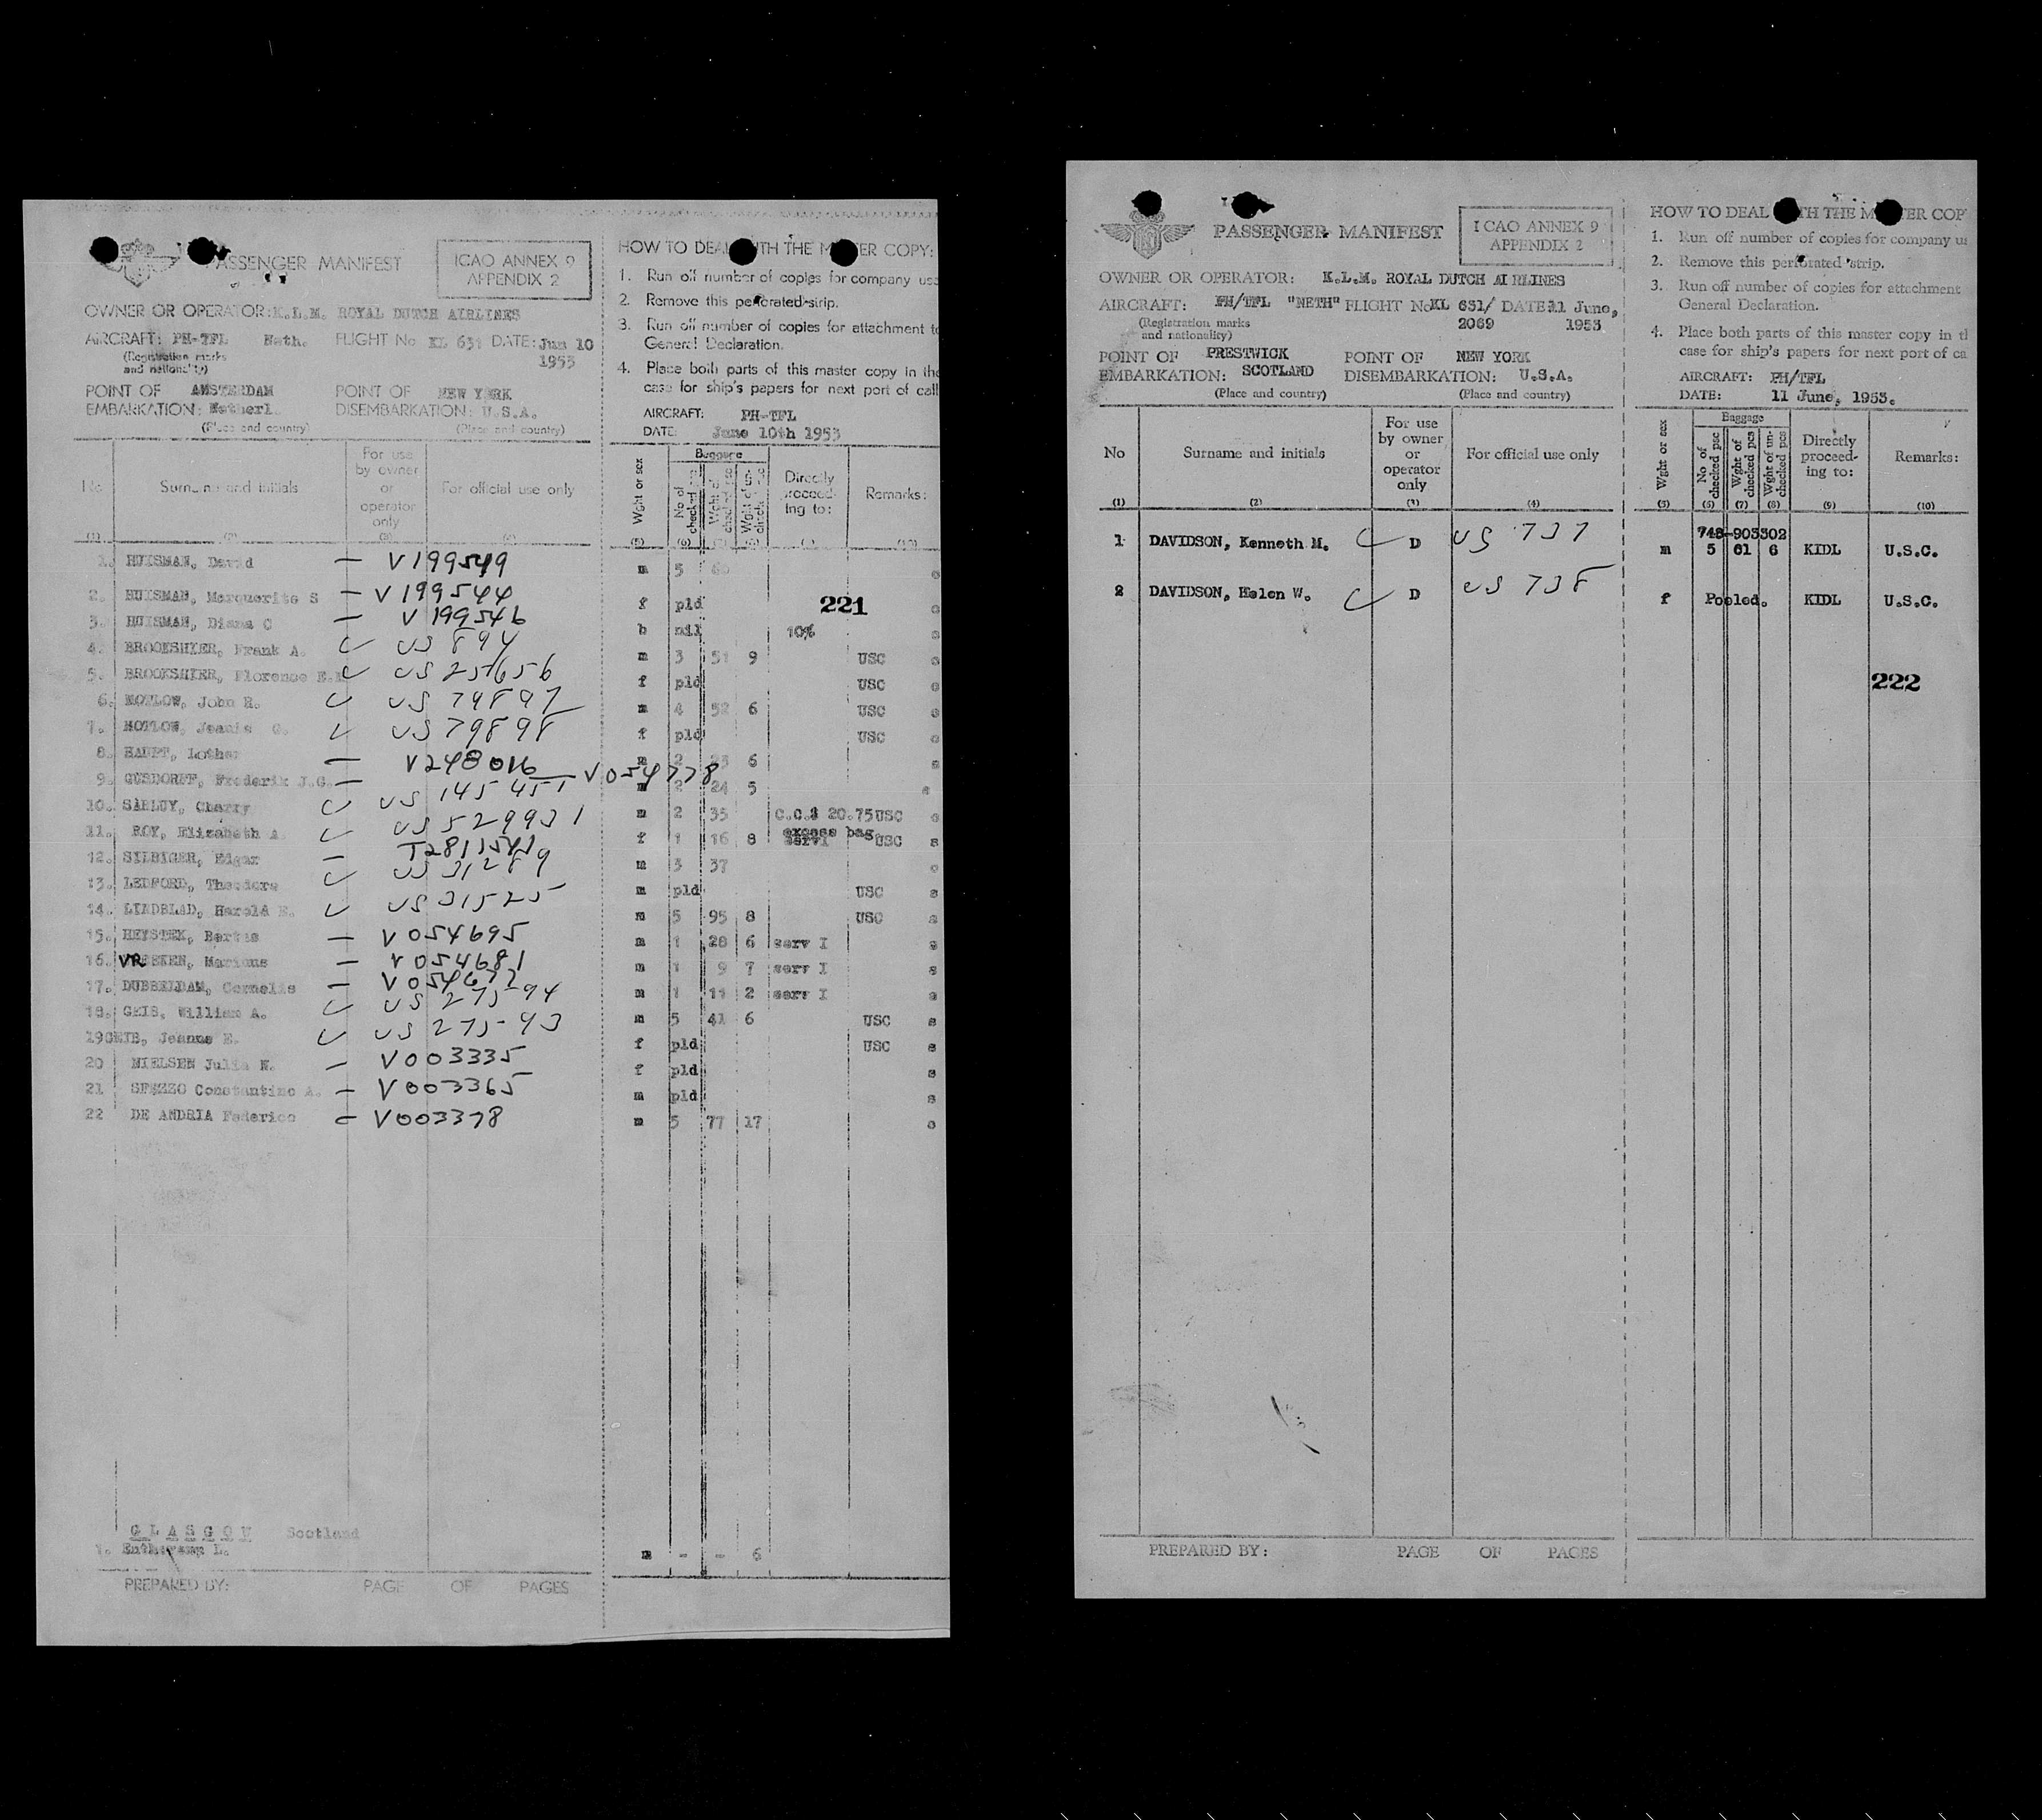 PASSENGER MANIFEST
ICAO ANNEX 9
APPENDIX 2
OWNER OR OPERATOR: K.L.M. ROYAL DUTCH AIRLINES
AIRCRAFT: PH-TFL Neth. FLIGHT No KL 631 DATE: Jun 10
1953
(Registration marks
and nationality)
POINT OF AMSTERDAM POINT OF NEW YORK
EMBARKATION: Netherl. DISEMBARKATION: U.S.A.
(Place and country) (Place and country)
No Surname and initials For use by owner or operator only For official use only
(1) (2) (3) (4)
1. HUISMAN, David — V199549
2. HUISMAN, Marguerite S — V199544
3. HUISMAN, Diana C — V199546
4. BROOKSHIER, Frank A. US 894
5. BROOKSHIER, Florence E. US 25656
6. MOTLOW, John R. US 79897
7. MOTLOW, Jeanie G. US 79898
8. HAUPT, Lothar — V248016
9. GUSDORFF, Frederik J.G. — V054778
10. SARLUY, Charry US 145451
11. ROY, Elizabeth A US 529931
12. SILBIGER, Edgar —
13. LEDFORD, Theodore US 31289
14. LINDBLAD, Harold E. US 31525
15. HEYSTEK, Bertus — V054695
16. Marinus — V054681
17. DUBBELDAM, Cornelis — V054677
18. GEIS, William A. US 27594
19 Jeanne E. US 27593
20 NIELSEN Julia N. — V003335
21 SPEZZO Constantino A. — V003365
22 DE ANDRIA Federico — V003378
GLASGOW Scotland
1. L.
PREPARED BY: PAGE OF PAGES
HOW TO DEAL WITH THE MASTER COPY:
1. Run off number of copies for company use
2. Remove this perforated strip.
3. Run off number of copies for attachment to
General Declaration.
4. Place both parts of this master copy in the
case for ship's papers for next port of call
AIRCRAFT: PH-TFL
DATE: June 10th 1953
Baggage
Wght or sex No of checked Wght of checked Wght of un-checked Directly proceed-ing to: Remarks:
(5) (6) (7) (8) (9) (10)
m 5 60
f pld 221
b nil 10%
m 3 51 9 USC
f pld USC
m 4 52 6 USC
f pld USC
m 2 23 6
m 2 24 5
m 2 35 C.C.$ 20.75 USC
excess bag.
f 1 16 8 servI USC
m 3 37
m pld USC
m 5 95 8 USC
m 1 28 6 serv I
m 1 9 7 serv I
m 1 11 2 serv I
m 5 41 6 USC
f pld USC
f pld
m pld
m 5 77 17
m - - 6
PASSENGER MANIFEST
ICAO ANNEX 9
APPENDIX 2
OWNER OR OPERATOR: K.L.M. ROYAL DUTCH AIRLINES
AIRCRAFT: PH/TFL "NETH" FLIGHT No KL 631/ DATE: 11 June,
(Registration marks 2069 1953
and nationality)
POINT OF PRESTWICK POINT OF NEW YORK
EMBARKATION: SCOTLAND DISEMBARKATION: U.S.A.
(Place and country) (Place and country)
No Surname and initials For use by owner or operator only For official use only
(1) (2) (3) (4)
1 DAVIDSON, Kenneth M. D US 737
2 DAVIDSON, Helen W. D US 738
PREPARED BY: PAGE OF PAGES
HOW TO DEAL WITH THE MASTER COP
1. Run off number of copies for company u
2. Remove this perforated strip.
3. Run off number of copies for attachment
General Declaration.
4. Place both parts of this master copy in t
case for ship's papers for next port of ca
AIRCRAFT: PH/TFL
DATE: 11 June, 1953.
Baggage
Wght or sex No of checked psc Wght of checked pcs Wght of un-checked pcs Directly proceed-ing to: Remarks:
(5) (6) (7) (8) (9) (10)
748-903302
m 5 61 6 KIDL U.S.C.
f Pooled. KIDL U.S.C.
222